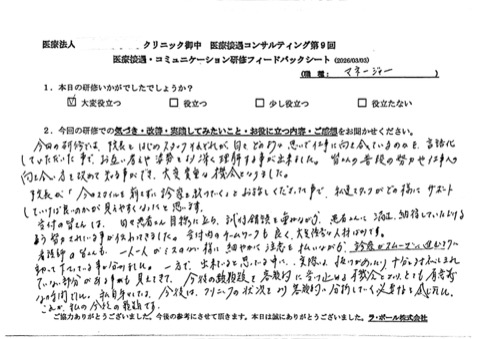 医療法人 クリニック御中 医療接遇コンサルティング第９回
医療接遇・コミュニケーション研修フィードバックシート (2026/03/03)
(職種： マネージャー )
１．本日の研修いかがでしたでしょうか？
☑ 大変役立つ □ 役立つ □ 少し役立つ □ 役立たない
２．今回の研修での気づき・改善・実践してみたいこと・お役に立つ内容・ご感想をお聞かせください。
今回の研修では、院長をはじめスタッフそれぞれが日々どのような思いで仕事に向き合っているのかを、言語化
していただいた事で、お互い考えや姿勢をより深く理解する事が出来ました。皆さんの普段の努力や仕事への
向き合い方を改めて知る事ができ、大変貴重な機会となりました。
院長が「今のスタイルを崩さずに診療を続けていく」とお話しくださった事で、私達スタッフがどの様にサポート
していけば良いのかが見えやすくなったと思います。
受付の皆さんは、日々患者さん目線に立ち、試行錯誤を重ねながら、患者さんに満足、納得していただける
よう努力されている事が伝わってきました。受付内のチームワークも良く、大変強みな人材ばかりです。
看護師の皆さんも、一人一人がミスのない様に細やかに注意を払いながら、診療がスムーズに進むように
動いて下さっている事が分かりました。一方で、出来ていると思っている中に、実際は抜けがあったり十分でなかったりされ
ていない部分がある事も見えてきて、今後の課題を客観的に受け止める機会となり、とても有意義
な時間でした。私自身としても、今後は、クリニックの状況をより客観的に分析していく必要性を感じました。
これが、私の今後の課題です。
ご協力ありがとうございました。今後の参考にさせて頂きます。本日は誠にありがとうございました。 ラ・ポール株式会社